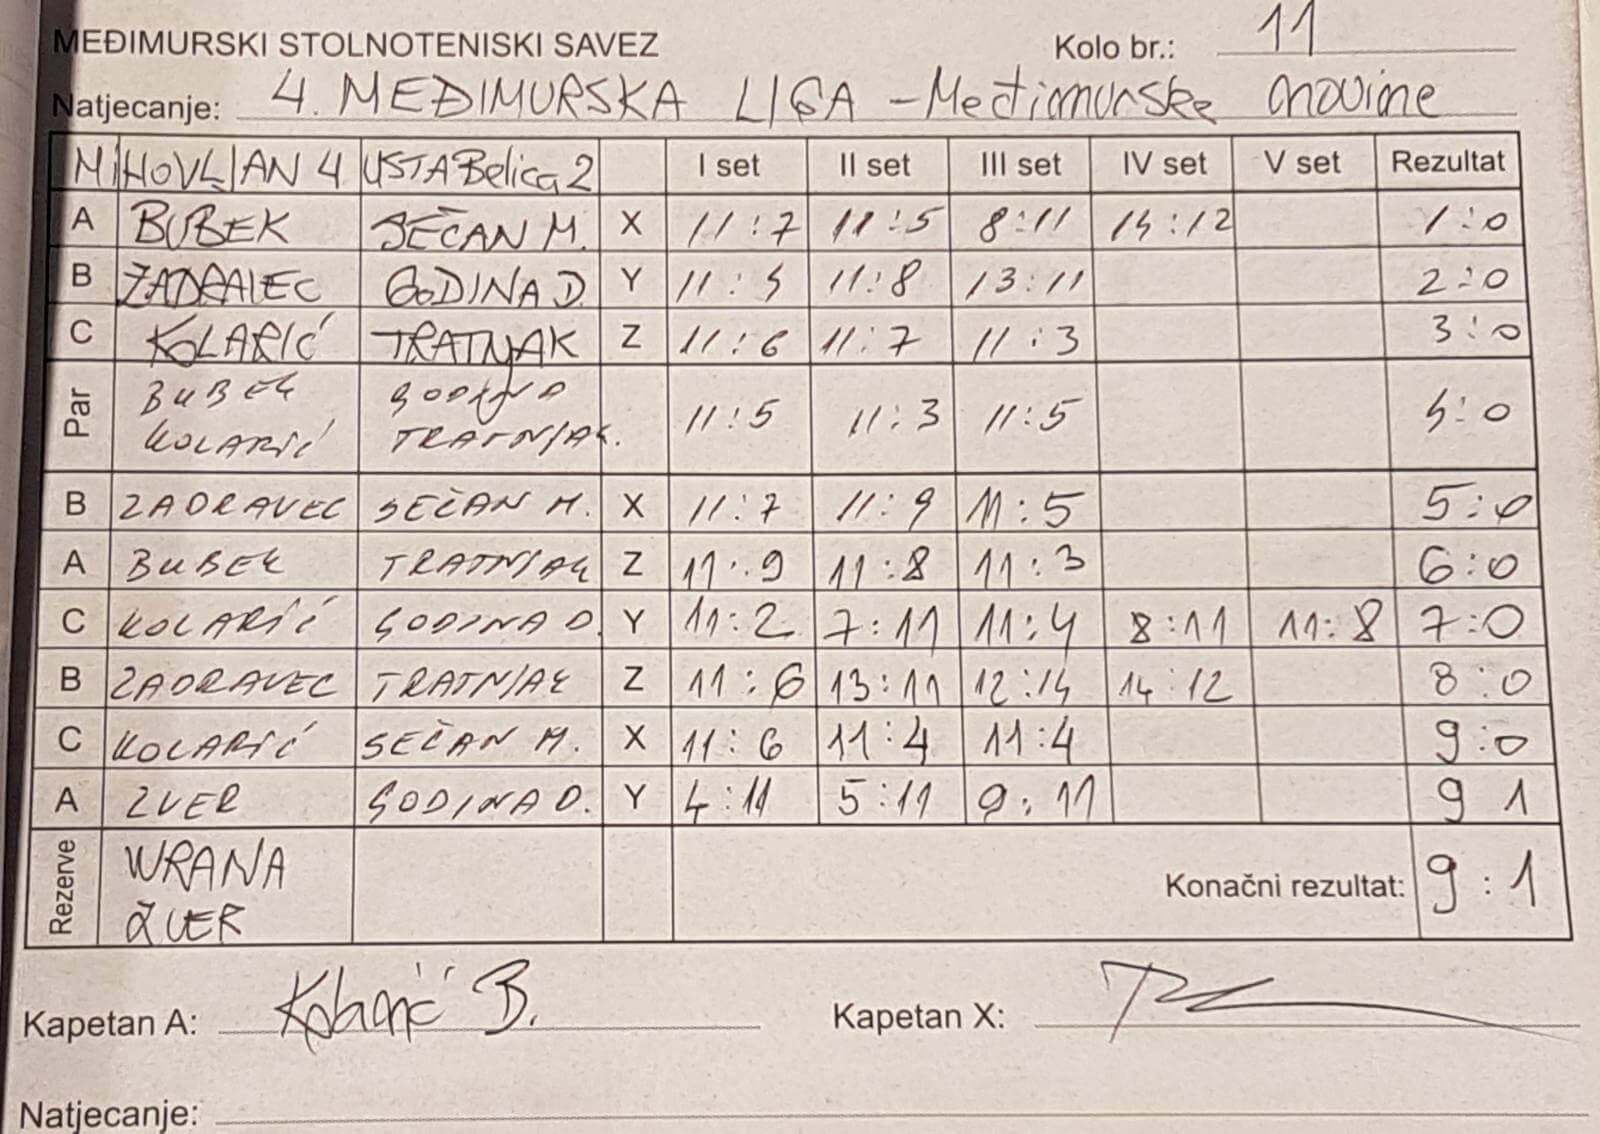 MEĐIMURSKI STOLNOTENISKI SAVEZ Kolo br.: 11
Natjecanje: 4. MEĐIMURSKA LIGA - Međimurske novine
MIHOVLJAN 4 USTA Belica 2 I set II set III set IV set V set Rezultat
A BUBEK SEČAN M. X 11:7 11:5 8:11 14:12 1:0
B ŽADRAVEC GODINA D. Y 11:4 11:8 13:11 2:0
C KOLARIĆ TRATNJAK Z 11:6 11:7 11:3 3:0
Par BUBEK GODINA 11:5 11:3 11:5 4:0
KOLARIĆ TRATNJAK.
B ZADRAVEC SEČAN M. X 11:7 11:9 11:5 5:0
A BUBEK TRATNJAK Z 11:9 11:8 11:3 6:0
C KOLARIĆ GODINA D. Y 11:2 7:11 11:4 8:11 11:8 7:0
B ZADRAVEC TRATNJAK Z 11:6 13:11 12:14 14:12 8:0
C KOLARIĆ SEČAN M. X 11:6 11:4 11:4 9:0
A ZVER GODINA D. Y 4:11 5:11 9:11 9 1
Rezerve WRANA Konačni rezultat: 9:1
ZVER
Kapetan A: Kolarić B. Kapetan X:
Natjecanje: